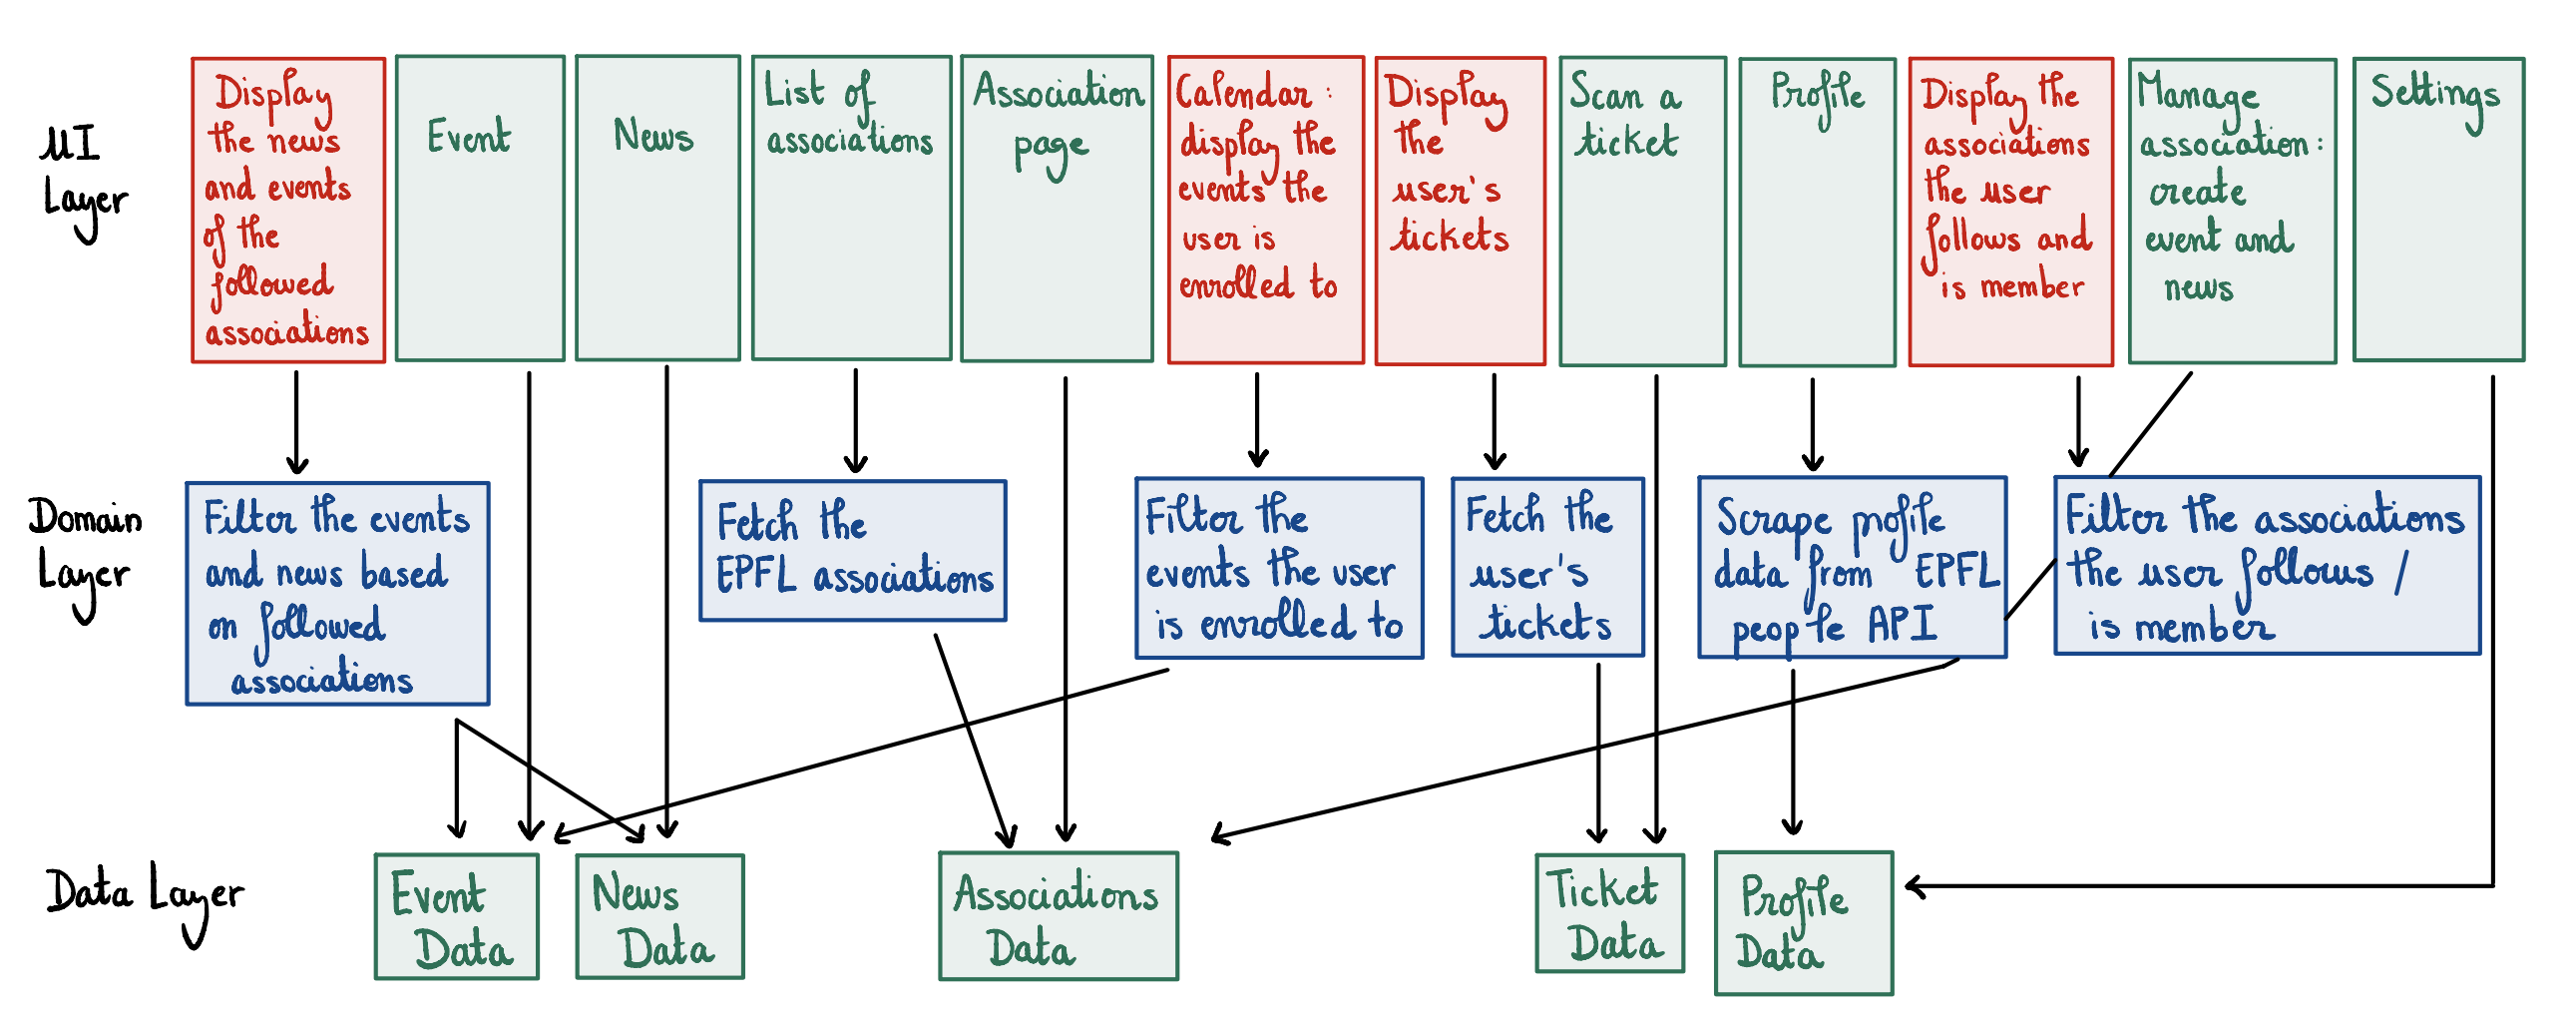 UI
Layer
Display
the news
and events
of the
followed
associations
Event
News
List of
associations
Association
page
Calendar :
display the
events the
user is
enrolled to
Display
the
user's
tickets
Scan a
ticket
Profile
Display the
associations
the user
follows and
is member
Manage
association:
create
event and
news
Settings
Domain
Layer
Filter the events
and news based
on followed
associations
Fetch the
EPFL associations
Filter the
events the user
is enrolled to
Fetch the
user's
tickets
Scrape profile
data from EPFL
people API
Filter the associations
the user follows /
is member
Data Layer
Event
Data
News
Data
Associations
Data
Ticket
Data
Profile
Data